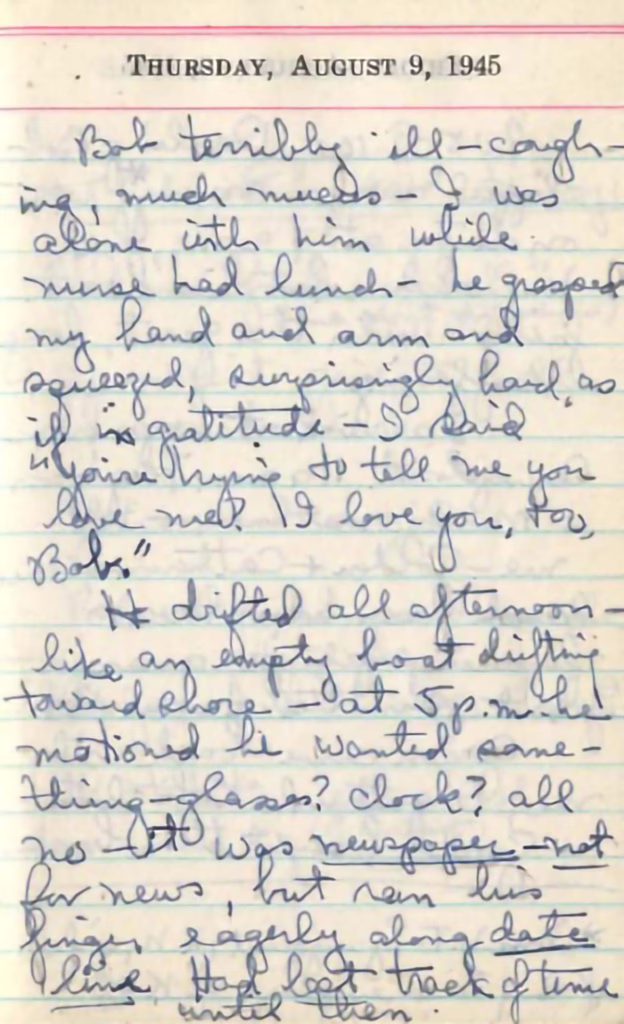 THURSDAY, AUGUST 9, 1945
Bob terribly ill – cough-
ing, much mucus – I was
alone with him while
nurse had lunch – he grasped
my hand and arm and
squeezed, surprisingly hard, as
if in gratitude – I said
"You're trying to tell me you
love me? I love you, too,
Bob."
He drifted all afternoon –
like an empty boat drifting
toward shore – at 5 p.m. he
motioned he wanted some-
thing – glasses? clock? all
no – it was newspaper – not
for news, but ran his
finger eagerly along date
line. Had lost track of time
until then.